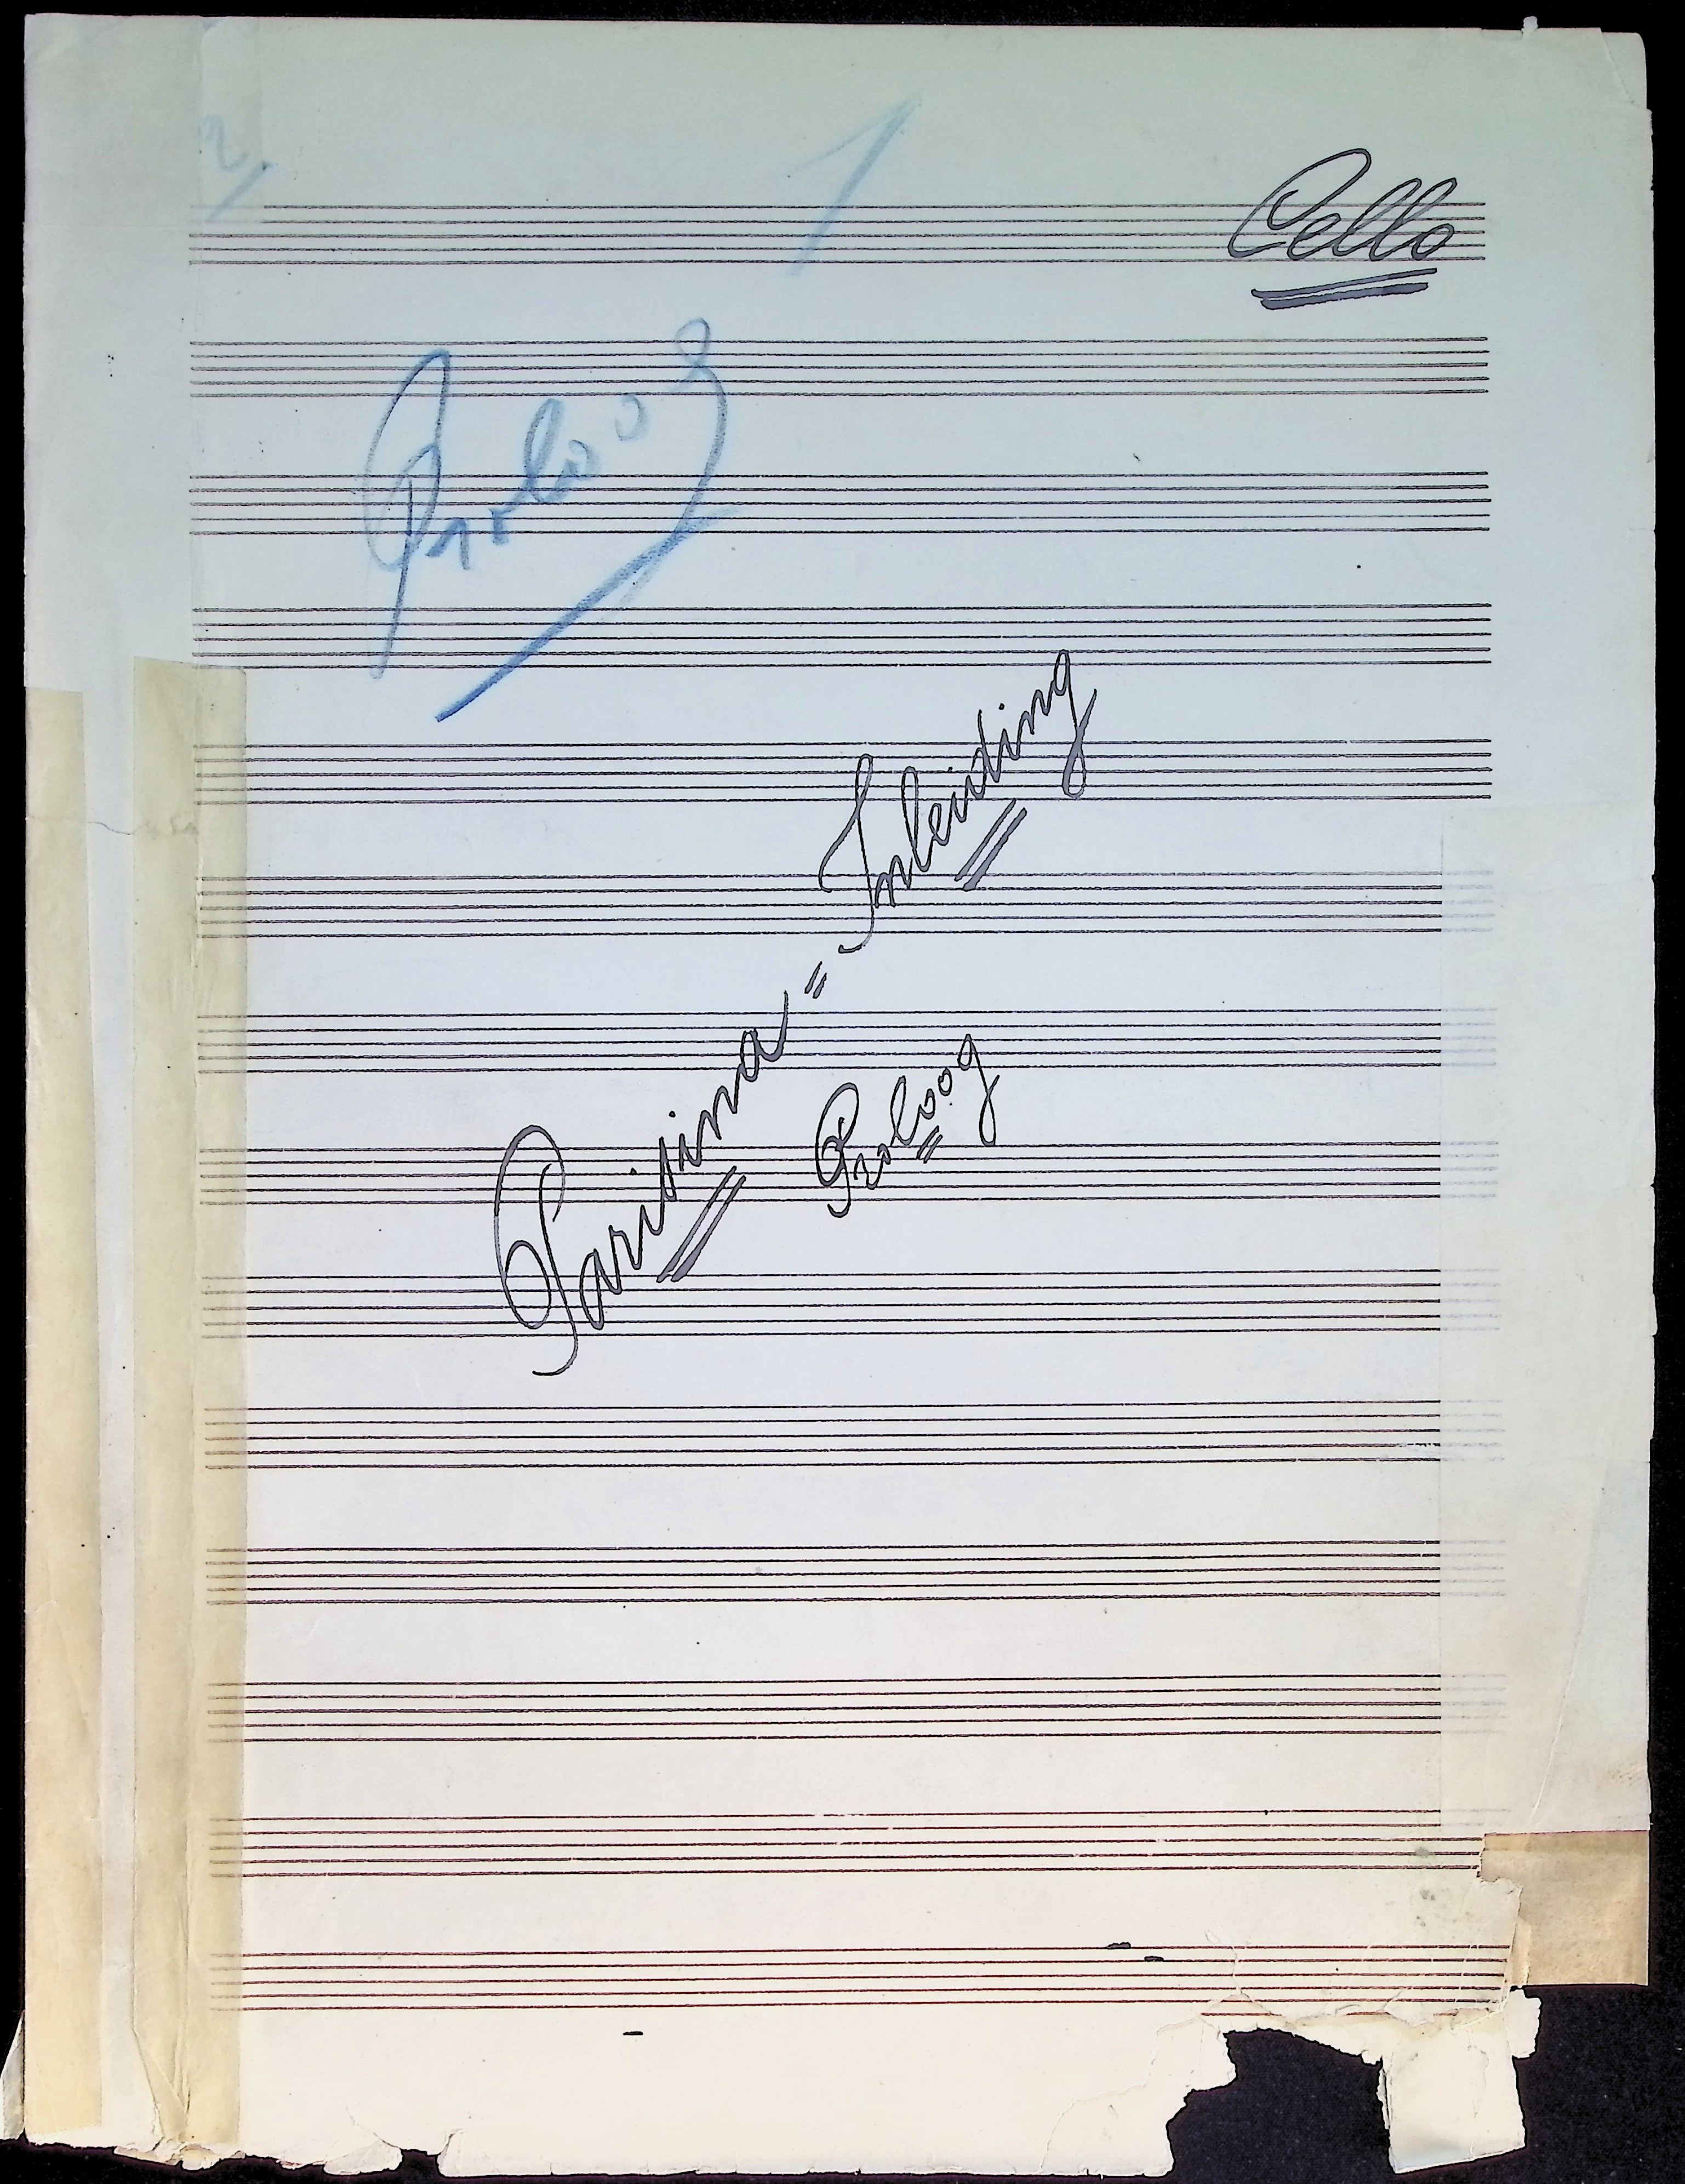 2
1
Cello
Proloog
Parisina = Inleiding
Proloog